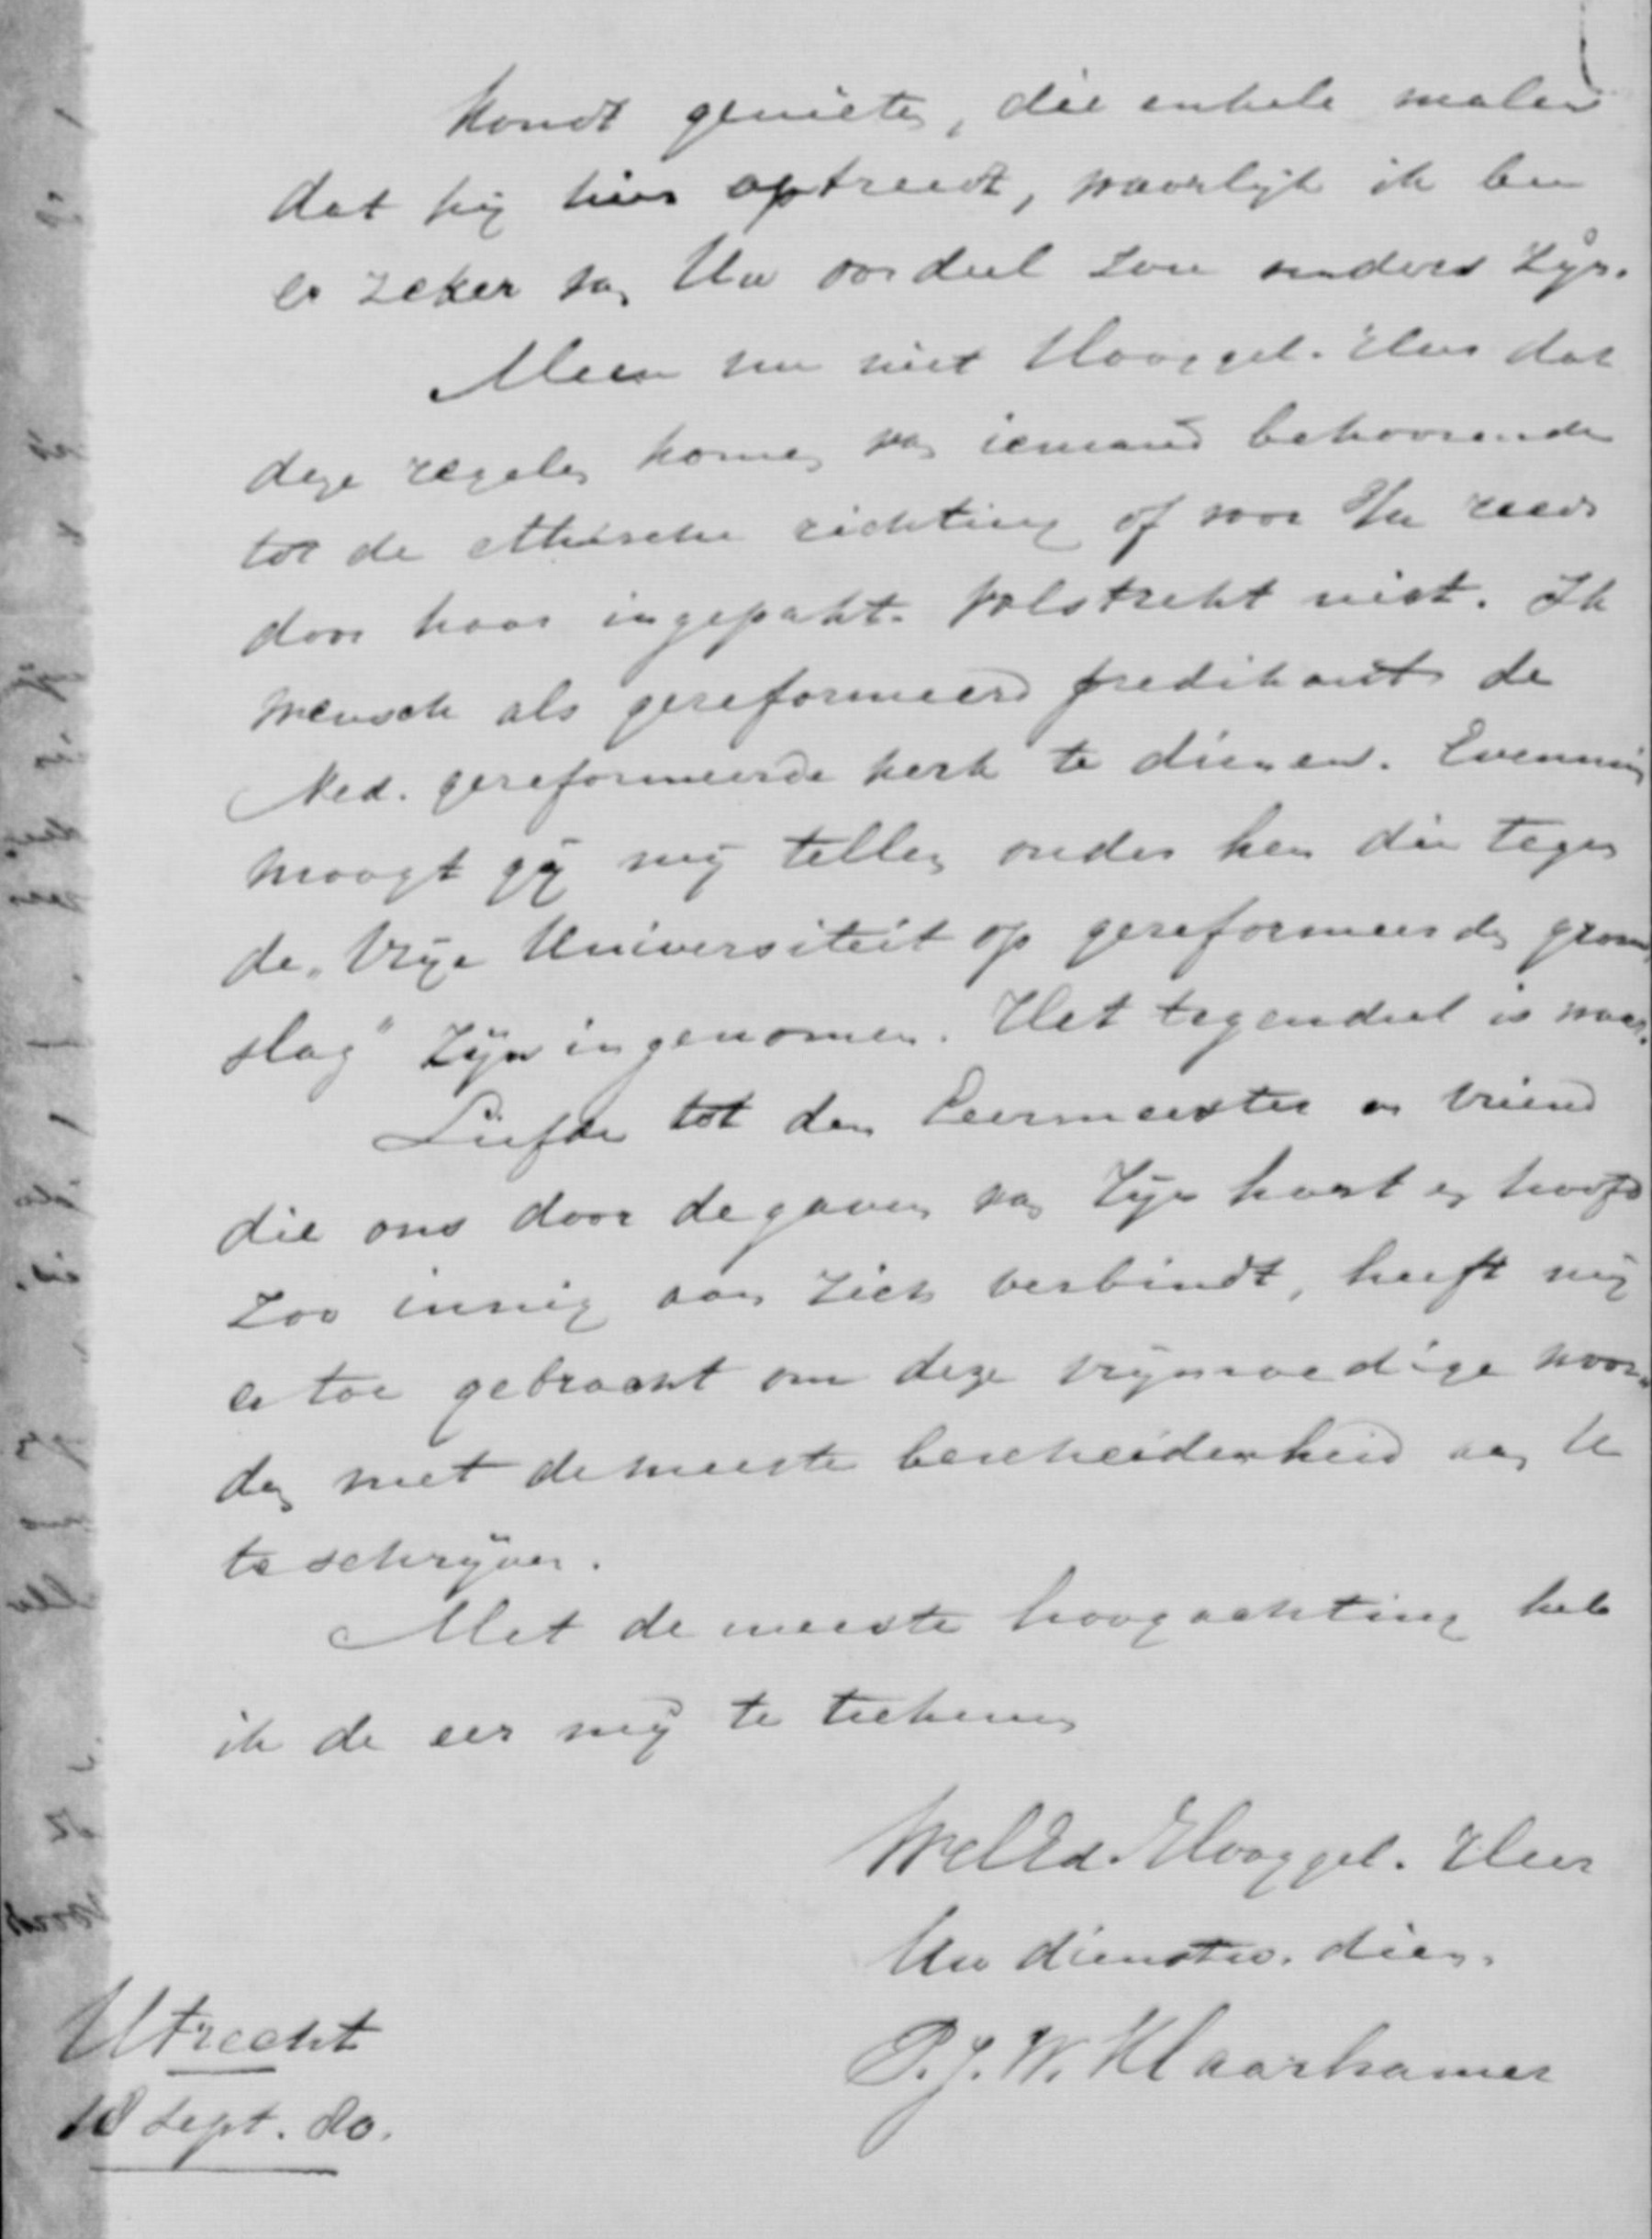 kondt genieten, die enkele malen
dat hij hier optreedt, waarlijk ik ben
er zeker van Uw oordeel zou anders zijn.
Meen nu niet Hooggel. Heer dat
deze regelen komen van iemand behoorende
tot de ethische richting of voor Uw reeds
door haar ingepakt. Volstrekt niet. Ik
wensch als gereformeerd predikant de
Ned. gereformeerde kerk te dienen. Evenmin
moogt gij mij tellen onder hen die tegen
de „Vrije Universiteit op gereformeerden grond
slag" zijn ingenomen. Het tegendeel is waar.
Liefde tot den Leermeester en vriend
die ons door de gaven van zijn hart en hoofd
zoo innig aan zich verbindt, heeft mij
er toe gebracht om deze vrijmoedige woor„
den met de meeste bescheidenheid aan U
te schrijven.
Met de meeste hoogachting heb
ik de eer mij te teekenen
WelEd. Hooggel. Heer
Uw dienstw. dien.
P. J. W. Klaarhamer
Utrecht
18 Sept. 80.